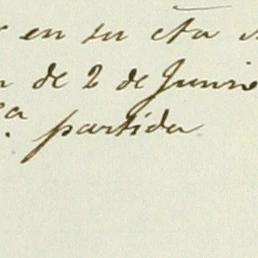 en su cta
de 2 de Junio
partida